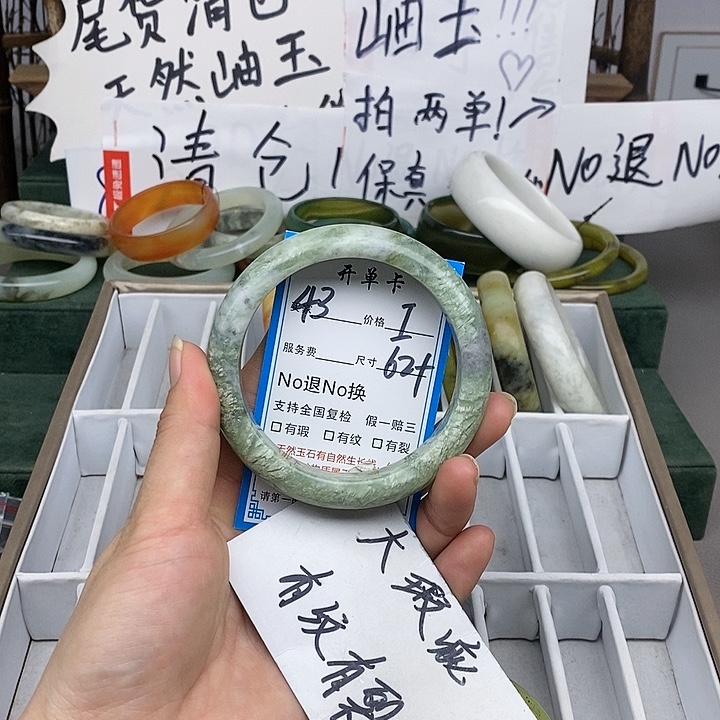 尾货清仓
天然岫玉
岫玉!!!
拍两单!
清仓!
保真
No退 No
开单卡
43 价格 I
服务费 尺寸 62+
No退No换
支持全国复检 假一赔三
□有瑕 □有纹 □有裂
天然玉石有自然生长
请第一
大瑕疵
有纹有裂